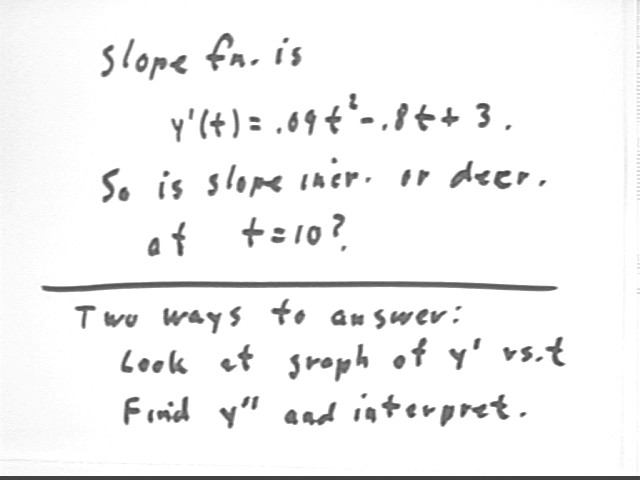 Slope fn. is
y'(t) = .09t²-.8t+ 3.
So is slope incr. or decr.
at t=10?
Two ways to answer:
Look at graph of y' vs.t
Find y" and interpret.